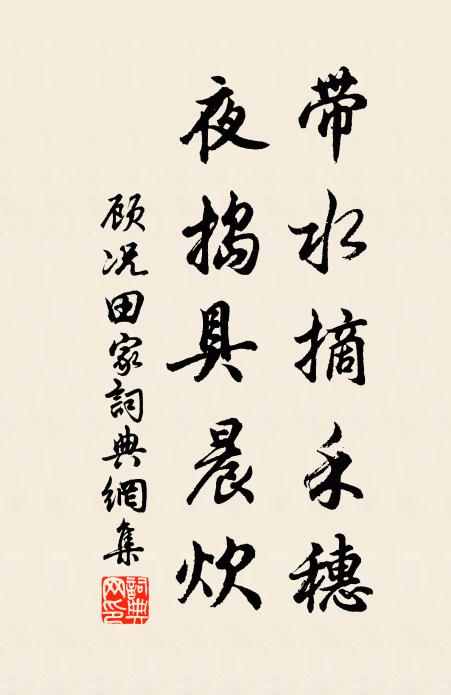 带水摘禾穗
夜捣具晨炊
顾况田家詞典網集
詞典网印